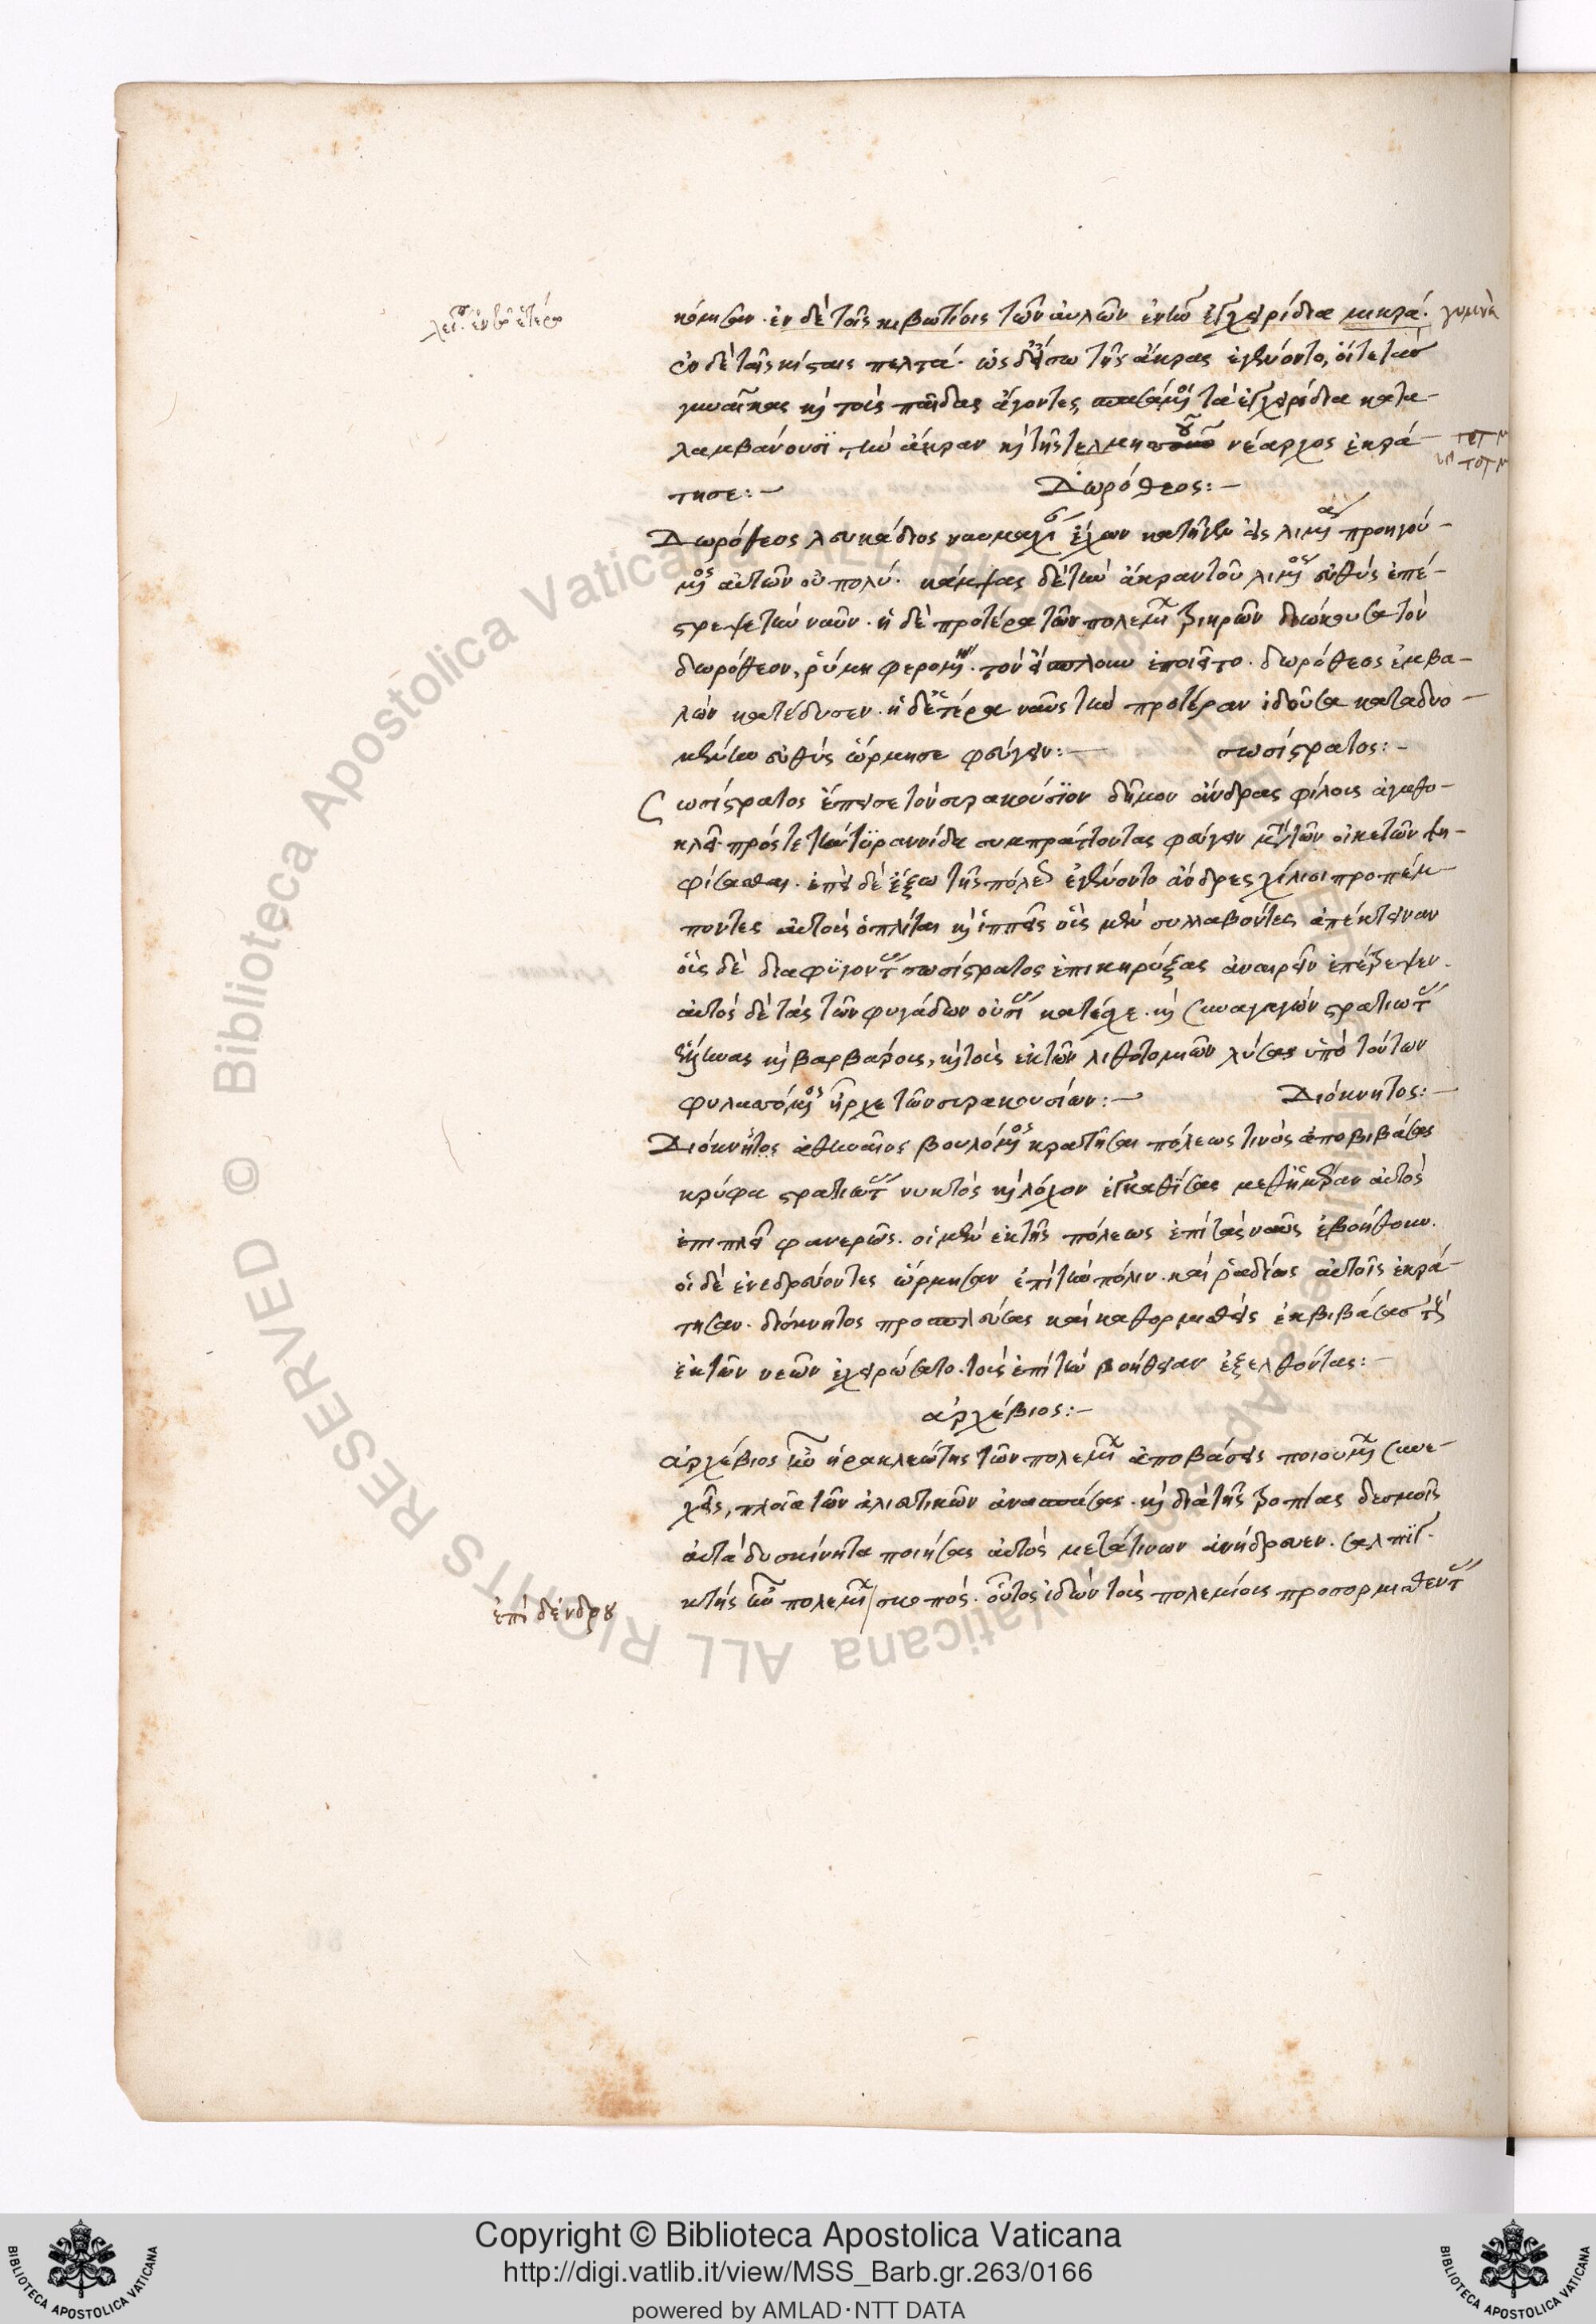 λεί. ἐν τῷ ἑτέρῳ
κόμισαν. ἐν δὲ τοῖς κιβωτίοις τῶν αὐλῶν ἐγχειρίδια μικρά. γυμνὰ
ἐν δὲ ταῖς κίσταις πελτά. ὡς δ' εἴσω τῆς ἄκρας ἐγένοντο, οἵτε τὰς
γυναῖκας καὶ τοὺς παῖδας ἄγοντες, τὰ ἐγχειρίδια κατα-
λαμβάνουσι τὴν ἄκραν καὶ τῆς νέαρχος ἐκρά-
τησε:- Δωρόθεος:-
Δωρόθεος λευκάδιος ναυμαχ ἔχων κατῆγεν εἰς λιμένα προηγού-
μενος αὐτῶν οὐ πολύ. κάμψας δὲ τὴν ἄκραν τοῦ λιμένος εὐθὺς ἐπέ-
στρεψε τὴν ναῦν. ἡ δὲ προτέρα τῶν πολεμίων τριηρῶν διώκουσα τὸν
δωρόθεον, ῥύμῃ φερομένη. τὸν εἴσπλουν ἐποιεῖτο. δωρόθεος ἐμβα-
λὼν κατέδυσεν. ἡ δ' ἑτέρα ναῦς τὴν προτέραν ἰδοῦσα καταδυο-
μένην εὐθὺς ὥρμησε φεύγειν:- σωσίστρατος:-
Σωσίστρατος ἔπεισε τὸν συρακούσιον δῆμον ἄνδρας φίλους ἀγαθο-
κλεῖ πρός τε τὴν τυραννίδα συμπράττοντας φεύγειν μετὰ τῶν οἰκετῶν ψη-
φίσασθαι. ἐπεὶ δὲ ἔξω τῆς πόλεως ἐγένοντο ἄνδρες χίλιοι προπέμ-
ποντες αὐτοὺς ὁπλῖται καὶ ἱππεῖς οὓς μὲν συλλαβόντες ἀπέκτειναν
οὓς δὲ διαφυγόντας σωσίστρατος ἐπικηρύξας ἀναιρεῖν ἐπέτρεψεν.
αὐτὸς δὲ τὰς τῶν φυγάδων οὐσίας κατέσχε. καὶ συναγαγὼν στρατιώτας
ἕλληνας καὶ βαρβάρους, καὶ τοὺς ἐκ τῶν λιθοτομιῶν λύσας ὑπὸ τούτων
φυλαττόμενος ἦρχε τῶν συρακουσίων:- Διόκνητος:-
Διόκνητος ἀθηναῖος βουλόμενος κρατῆσαι πόλεως τινὸς ἀποβιβάσας
κρύφα στρατιώτας νυκτὸς καὶ λόχον ἐγκαθίσας μεθ' ἡμέραν αὐτὸς
ἐπιπλεῖ φανερῶς. οἱ μὲν ἐκ τῆς πόλεως ἐπὶ τὰς ναῦς ἐβοήθουν.
οἱ δὲ ἐνεδρεύοντες ὥρμησαν ἐπὶ τὴν πόλιν. καὶ ῥᾳδίως αὐτοῖς ἐκρά-
τησαν. διόκνητος προσπλεύσας καὶ καθορμισθεὶς ἐκβιβάσας τοὺς
ἐκ τῶν νεῶν ἐχειρώσατο τοὺς ἐπὶ τὴν βοήθειαν ἐξελθόντας:-
ἀρχέβιος:-
ἀρχέβιος ἡρακλεώτης τῶν πολεμίων ἀποβάσεις ποιουμένων συνε-
χεῖς, πλοῖα τῶν ἁλιευτικῶν ἀνασπάσας. καὶ διὰ τῆς τροπίας δεσμοῖς
αὐτὰ δυσκίνητα ποιήσας αὐτὸς μετά τινων ἐνήδρευεν. σαλπιγ-
κτὴς ἦν πολεμίων σκοπός. οὗτος ἰδὼν τοὺς πολεμίους προσορμισθέντας
ἐπὶ δένδρου
Copyright © Biblioteca Apostolica Vaticana
http://digi.vatlib.it/view/MSS_Barb.gr.263/0166
powered by AMLAD·NTT DATA
BIBLIOTECA APOSTOLICA VATICANA
BIBLIOTECA APOSTOLICA VATICANA
© Biblioteca Apostolica Vaticana ALL RIGHTS RESERVED